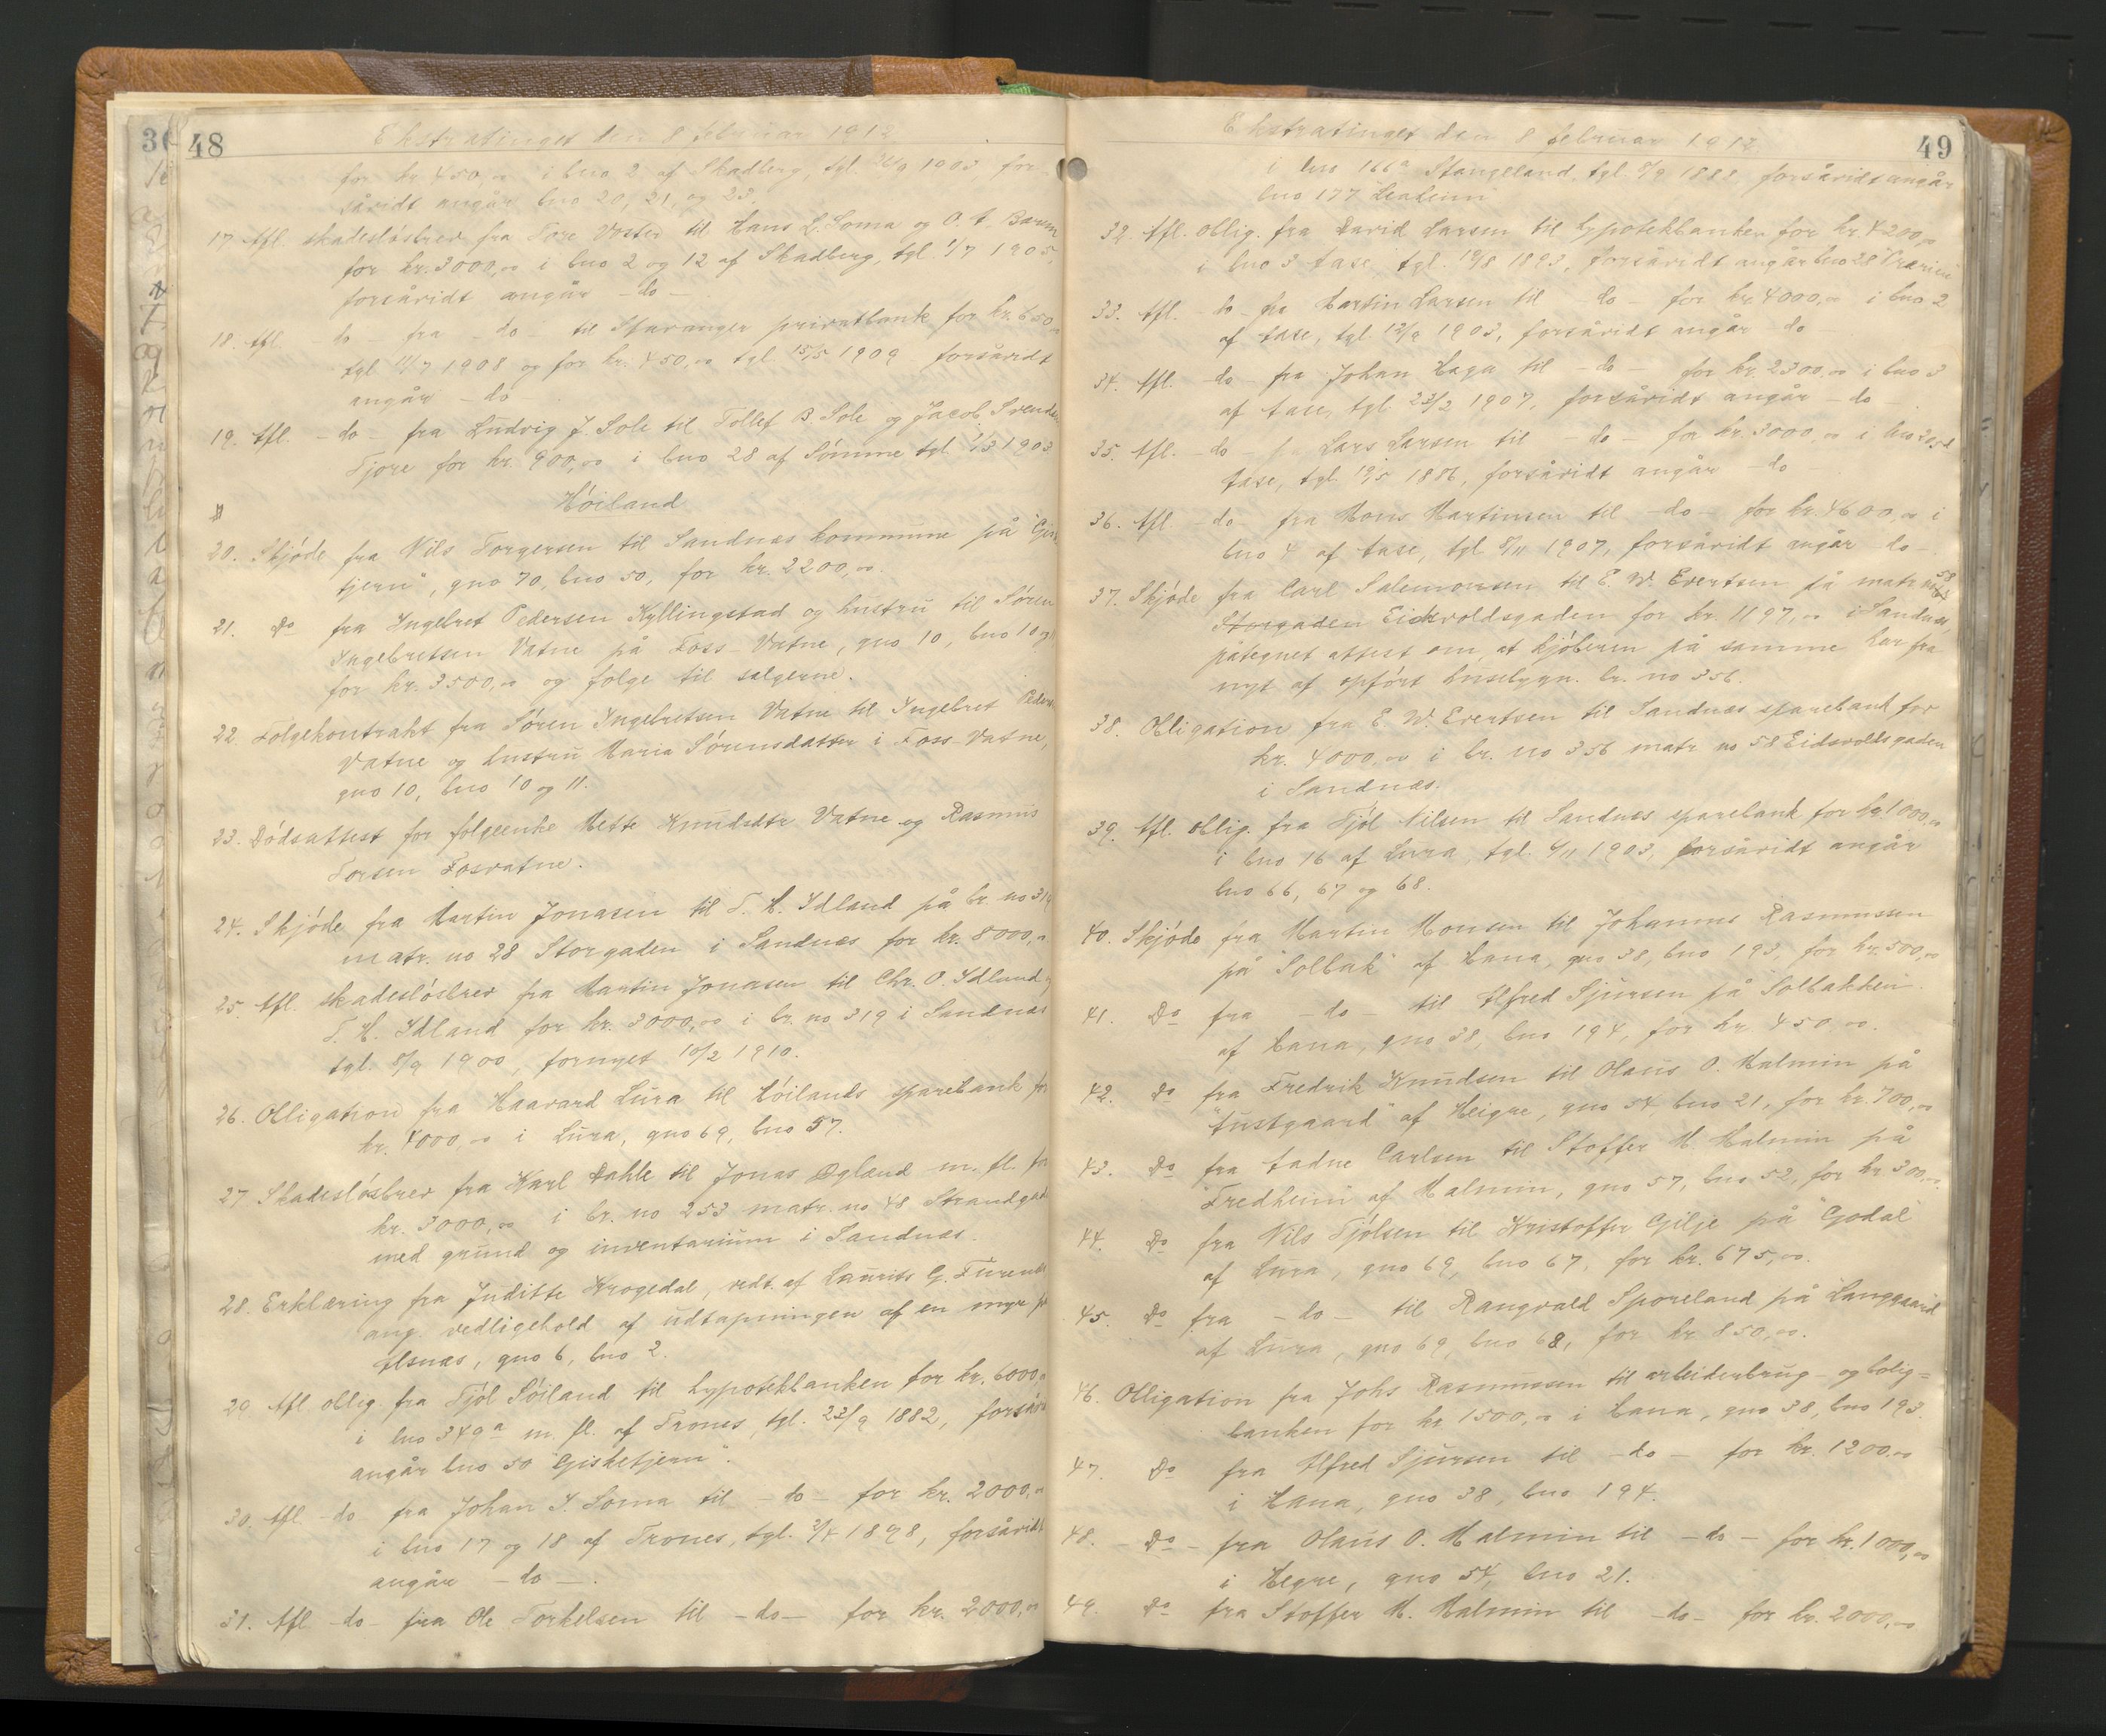 48
Ekstratinget den 8 februar 1912
for kr. 450,00 i bno 2 af Skadberg, tgl. 26/9 1903 for-
såvidt angår bno 20, 21, og 23.
17 Afl. skadesløsbrev fra Tore Voster til Hans L. Soma og O. A.
for kr. 3000,00 i bno 2 og 12 af Skadberg, tgl. 1/7 1905,
forsåvidt angår -do-
18. Afl. -do- fra -do- til Stavanger privatbank for kr. 650,00
tgl. 11/7 1908 og for kr. 450,00 tgl. 15/5 1909 forsåvidt
angår -do-
19. Afl. -do- fra Ludvig J. Sole til Tollef B. Sole og Jacob Svends
Tjore for kr. 900,00 i bno 28 af Sømme tgl. 1/3 1903
Høiland
20. Skjøde fra Nils Torgersen til Sandnæs kommune på "Giske
tjern", gno 70, bno 50, for kr. 2200,00.
21. Do fra Ingebret Pedersen Kyllingstad og hustru til Søren
Ingebretsen Vatne på Foss-Vatne, gno 10, bno 10 og 11
for kr. 3500,00 og følge til sælgerne.
22 Følgekontrakt fra Søren Ingebretsen Vatne til Ingebret Peders
Vatne og hustru Maria Sørensdatter i Foss-Vatne,
gno 10, bno 10 og 11.
23. Dødsattest for følgeenke Mette Knudsdtr Vatne og Rasmus
Torsen Fosvatne.
24. Skjøde fra Martin Jonasen til T. H. Idland på br. no 319
matr. no 28 Storgaden i Sandnæs for kr. 8000,00
25. Afl. skadesløsbrev fra Martin Jonasen til Chr. O. Idland og
T. H. Idland for kr. 3000,00 i br. no 319 i Sandnæs
tgl. 8/9 1900, fornyet 10/2 1910.
26. Obligation fra Haavard Lura til Høilands sparebank for
kr. 4000,00 i Lura, gno 69, bno 57.
27 Skadesløsbrev fra Karl Dahle til Jonas Øgland m. fl. for
kr. 3000,00 i br. no 253 matr. no 48 Strandgad
med grund og inventarium i Sandnæs.
28. Erklæring fra Juditte Krogedal, vedt. af Laurits G. Furenes
ang. vedligehold af udtapningen af en myr på
Alsnæs, gno 6, bno 2.
29 Afl oblig. fra Tjøl Søiland til hypotekbanken for kr. 6000,00
i bno 349a m. fl. af Trones, tgl. 23/9 1882, forsåv
angår bno 50 "Gisketjern".
30. Afl -do- fra Johan I. Soma til -do- for kr. 2000,00
i bno 17 og 18 af Trones, tgl. 2/5 1898, forsåvidt
angår -do-.
31. Afl -do- fra Ole Torkelsen til -do- for kr. 2000,00
49
Ekstratinget den 8 februar 1912
i bno 166a Stangeland, tgl. 8/9 1888 forsåvidt angår
bno 177
32. Afl. oblig. fra David Larsen til hypotekbanken for kr. 4200,00
i bno 3 Aase tgl. 19/8 1893, forsåvidt angår bno 28 "Prærien"
33. Afl. -do- fra Martin Larsen til -do- for kr. 4000,00 i bno 2
af Aase, tgl. 12/9 1903, forsåvidt angår -do-
34. Afl. -do- fra Johan Haga til -do- for kr. 2300,00 i bno 3
af Aase, tgl. 23/2 1907, forsåvidt angår -do-.
35. Afl. -do- fra Lars Larsen til -do- for kr. 3000,00 i bno
Aase, tgl. 19/5 1886, forsåvidt angår -do-
36. Afl -do- fra Mons Martinsen til -do- for kr. 4600,00 i
bno 4 af Aase, tgl. 8/11 1907, forsåvidt angår -do-.
37. Skjøde fra Carl Salemonsen til E. W. Evertsen på matr no 58
Storgaden Eidsvoldsgaden for kr. 1197,00 i Sandnæs,
påtegnet attest om, at kjøberen på samme har fra
nyt af opført husebygn. br. no 356.
38. Obligation fra E. W. Evertsen til Sandnæs sparebank for
kr. 4000,00 i br. no 356 matr no 58 Eidsvoldsgaden
i Sandnæs.
39. Afl. oblig. fra Tjøl Nilsen til Sandnæs sparebank for kr. 1000,00
i bno 16 af Lura, tgl. 6/11 1903, forsåvidt angår
bno 66, 67 og 68.
40. Skjøde fra Martin Monsen til Johannes Rasmussen
på "Solbak" af Hana, gno 38, bno 193, for kr. 500,00
41. Do fra -do- til Alfred Sjursen på Solbakken
af Hana, gno 38, bno 194, for kr. 450,00.
42. Do fra Fredrik Knudsen til Olaus O. Malmin på
"Austgaard" af Heigre, gno 54 bno 21, for kr. 700,00
43. Do fra Aadne Carlsen til Stoffer M. Malmin på
"Fredheim" af Malmin, gno 57, bno 52, for kr. 300,00.
44. Do fra Nils Tjølsen til Kristoffer Gilje på "Godal"
af Lura, gno 69, bno 67, for kr. 675,00.
45. Do fra -do- til Rangvald Sporeland på "Langgaard
af Lura, gno 69, bno 68, for kr 850,00.
46. Obligation fra Johs Rasmussen til arbeiderbrug- og bolig=
banken for kr 1500,00 i Hana, gno 38, bno 193.
47. Do fra Alfred Sjursen til -do- for kr. 1200,00
i Hana, gno 38, bno 194.
48. -Do- fra Olaus O. Malmin til -do- for kr. 1000,00
i Hegre, gno 54, bno 21.
49. Do fra Stoffer M. Malmin til -do- for kr. 2000,00